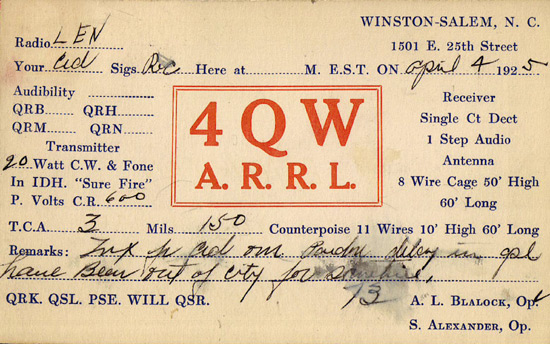 WINSTON-SALEM, N. C.
1501 E. 25th Street
Radio LEN
Your Crd Sigs Rc Here at M. E.S.T. ON April 4 1925
Audibility
QRB QRH
QRM QRN
Transmitter
20 Watt C.W. & Fone
In IDH. "Sure Fire"
P. Volts C.R. 600
4QW
A. R. R. L.
Receiver
Single Ct Dect
1 Step Audio
Antenna
8 Wire Cage 50' High
60' Long
T.C.A. 3 Mils 150 Counterpoise 11 Wires 10' High 60' Long
Remarks: Tnx fr Crd om Pardn deley in qsl
have Been out of city for sometime,
73
QRK. QSL. PSE. WILL QSR.
A. L. BLALOCK, Op.
S. ALEXANDER, Op.